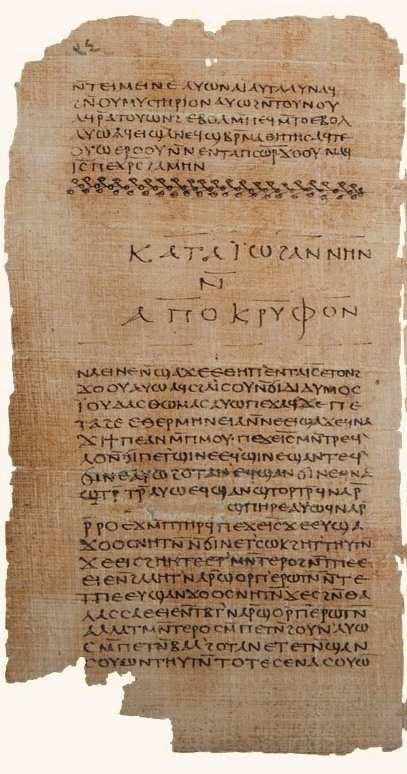 ⲛ̄ⲧⲉⲓⲙⲉⲓⲛⲉ ⲁⲩⲱ ⲛⲁⲓ̈ ⲁⲩⲧⲁⲁⲩ ⲛⲁϥ
ϩⲛ̄ⲟⲩⲙⲩⲥⲧⲏⲣⲓⲟⲛ ⲁⲩⲱ ϩⲛ̄ⲧⲟⲩⲛⲟⲩ
ⲁϥⲣ̄ⲁⲧⲟⲩⲱⲛϩ ⲉⲃⲟⲗ ⲙ̄ⲡⲉϥⲙ̄ⲧⲟ ⲉⲃⲟⲗ
ⲁⲩⲱ ⲁϥⲉⲓ ϣⲁⲛⲉϥϣⲃⲣ̄ⲙⲁⲑⲏⲧⲏⲥ ⲁϥⲧⲉ
ⲟⲩⲱ ⲉⲣⲟⲟⲩ ⲛ̄ⲛⲉⲛⲧⲁⲡⲥⲱ̄ⲣ̄ ϫⲟⲟⲩ ⲛⲁϥ
ⲓ̅ⲥ̅ ⲡⲉⲭ̅ⲣ̅ⲥ̅ ϩⲁⲙⲏⲛ
ⲕⲁⲧⲁ ⲓ̈ⲱϩⲁⲛⲛⲏⲛ
ⲛ̄
ⲁⲡⲟⲕⲣⲩⲫⲟⲛ
ⲛⲁⲉⲓ ⲛⲉ ⲛ̄ϣⲁϫⲉ ⲉⲑⲏⲡ ⲉⲛⲧⲁⲓ̅ⲥ̅ ⲉⲧⲟⲛϩ
ϫⲟⲟⲩ ⲁⲩⲱ ⲁϥⲥϩⲁⲓ̈ⲥⲟⲩ ⲛ̄ϭⲓⲇⲓⲇⲩⲙⲟⲥ
ⲓ̈ⲟⲩⲇⲁⲥ ⲑⲱⲙⲁⲥ ⲁⲩⲱ ⲡⲉϫⲁϥ ϫⲉ ⲡⲉ
ⲧⲁϩⲉ ⲉⲑⲉⲣⲙⲏⲛⲉⲓⲁ ⲛ̄ⲛⲉⲉⲓϣⲁϫⲉ ϥⲛⲁ
ϫⲓϯⲡⲉ ⲁⲛ ⲙ̄ⲡⲙⲟⲩ· ⲡⲉϫⲉⲓ̅ⲥ̅ ⲙⲛ̄ⲧⲣⲉϥ
ⲗⲟ ⲛ̄ϭⲓⲡⲉⲧϣⲓⲛⲉ ⲉϥϣⲓⲛⲉ ϣⲁⲛⲧⲉϥ
ϭⲓⲛⲉ ⲁⲩⲱ ϩⲟⲧⲁⲛ ⲉϥϣⲁⲛϭⲓⲛⲉ ϥⲛⲁ
ϣⲧⲣ̄ⲧⲣ̄ ⲁⲩⲱ ⲉϥϣⲁⲛϣⲧⲟⲣⲧⲣ̄ ϥⲛⲁⲣ̄
ϣⲡⲏⲣⲉ ⲁⲩⲱ ϥⲛⲁⲣ̄
ⲣ̄ⲣⲟ ⲉϫⲙ̄ⲡⲧⲏⲣϥ ⲡⲉϫⲉⲓ̅ⲥ̅ ϫⲉ ⲉⲩϣⲁ
ϫⲟⲟⲥ ⲛⲏⲧⲛ̄ ⲛ̄ϭⲓⲛⲉⲧⲥⲱⲕ ϩⲏⲧⲧⲏⲩⲧⲛ̄
ϫⲉ ⲉⲓⲥϩⲏⲏⲧⲉ ⲉⲧⲙⲛ̄ⲧⲉⲣⲟ ϩⲛ̄ⲧⲡⲉ
ⲉⲉⲓⲉ ⲛ̄ϩⲁⲗⲏⲧ ⲛⲁⲣ̄ϣⲟⲣⲡ ⲉⲣⲱⲧⲛ̄ ⲛ̄ⲧⲉ
ⲧⲡⲉ ⲉⲩϣⲁⲛϫⲟⲟⲥ ⲛⲏⲧⲛ̄ ϫⲉ ⲥϩⲛ̄ⲑⲁ
ⲗⲁⲥⲥⲁ ⲉⲉⲓⲉ ⲛ̄ⲧⲃⲧ ⲛⲁⲣ̄ϣⲟⲣⲡ ⲉⲣⲱⲧⲛ̄
ⲁⲗⲗⲁ ⲧⲙⲛ̄ⲧⲉⲣⲟ ⲥⲙ̄ⲡⲉⲧⲛ̄ϩⲟⲩⲛ ⲁⲩⲱ
ⲥⲙ̄ⲡⲉⲧⲛ̄ⲃⲁⲗ ϩⲟⲧⲁⲛ ⲉⲧⲉⲧⲛ̄ϣⲁⲛ
ⲥⲟⲩⲱⲛ ⲧⲏⲩⲧⲛ̄ ⲧⲟⲧⲉ ⲥⲉⲛⲁⲥⲟⲩⲱ